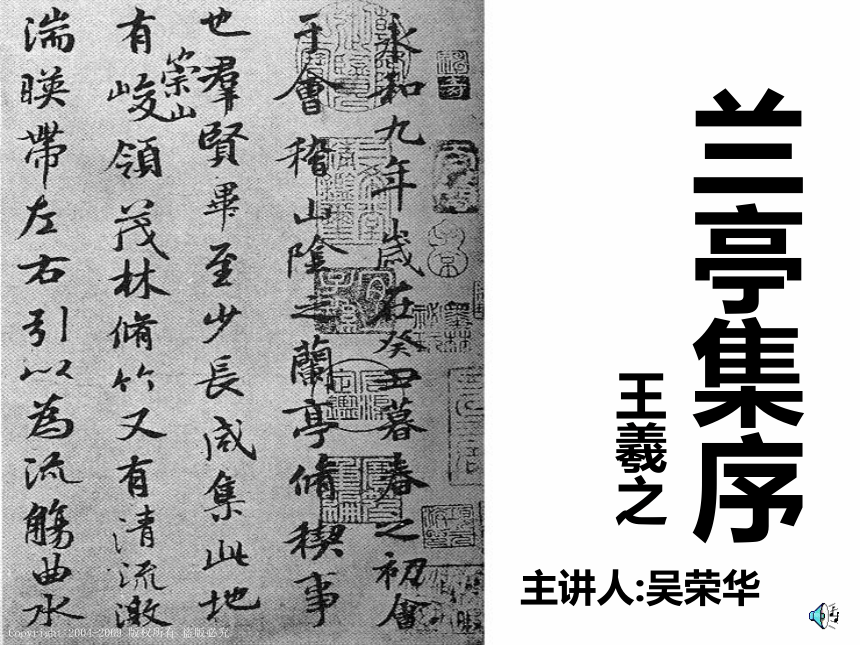 兰亭集序
王羲之
主讲人:吴荣华
永和九年歲在癸丑暮春之初會
于會稽山陰之蘭亭脩稧事
也羣賢畢至少長咸集此地
有崇山峻領茂林脩竹又有清流激
湍暎帶左右引以為流觴曲水
Copyright 2004-2009 版权所有 盗版必究